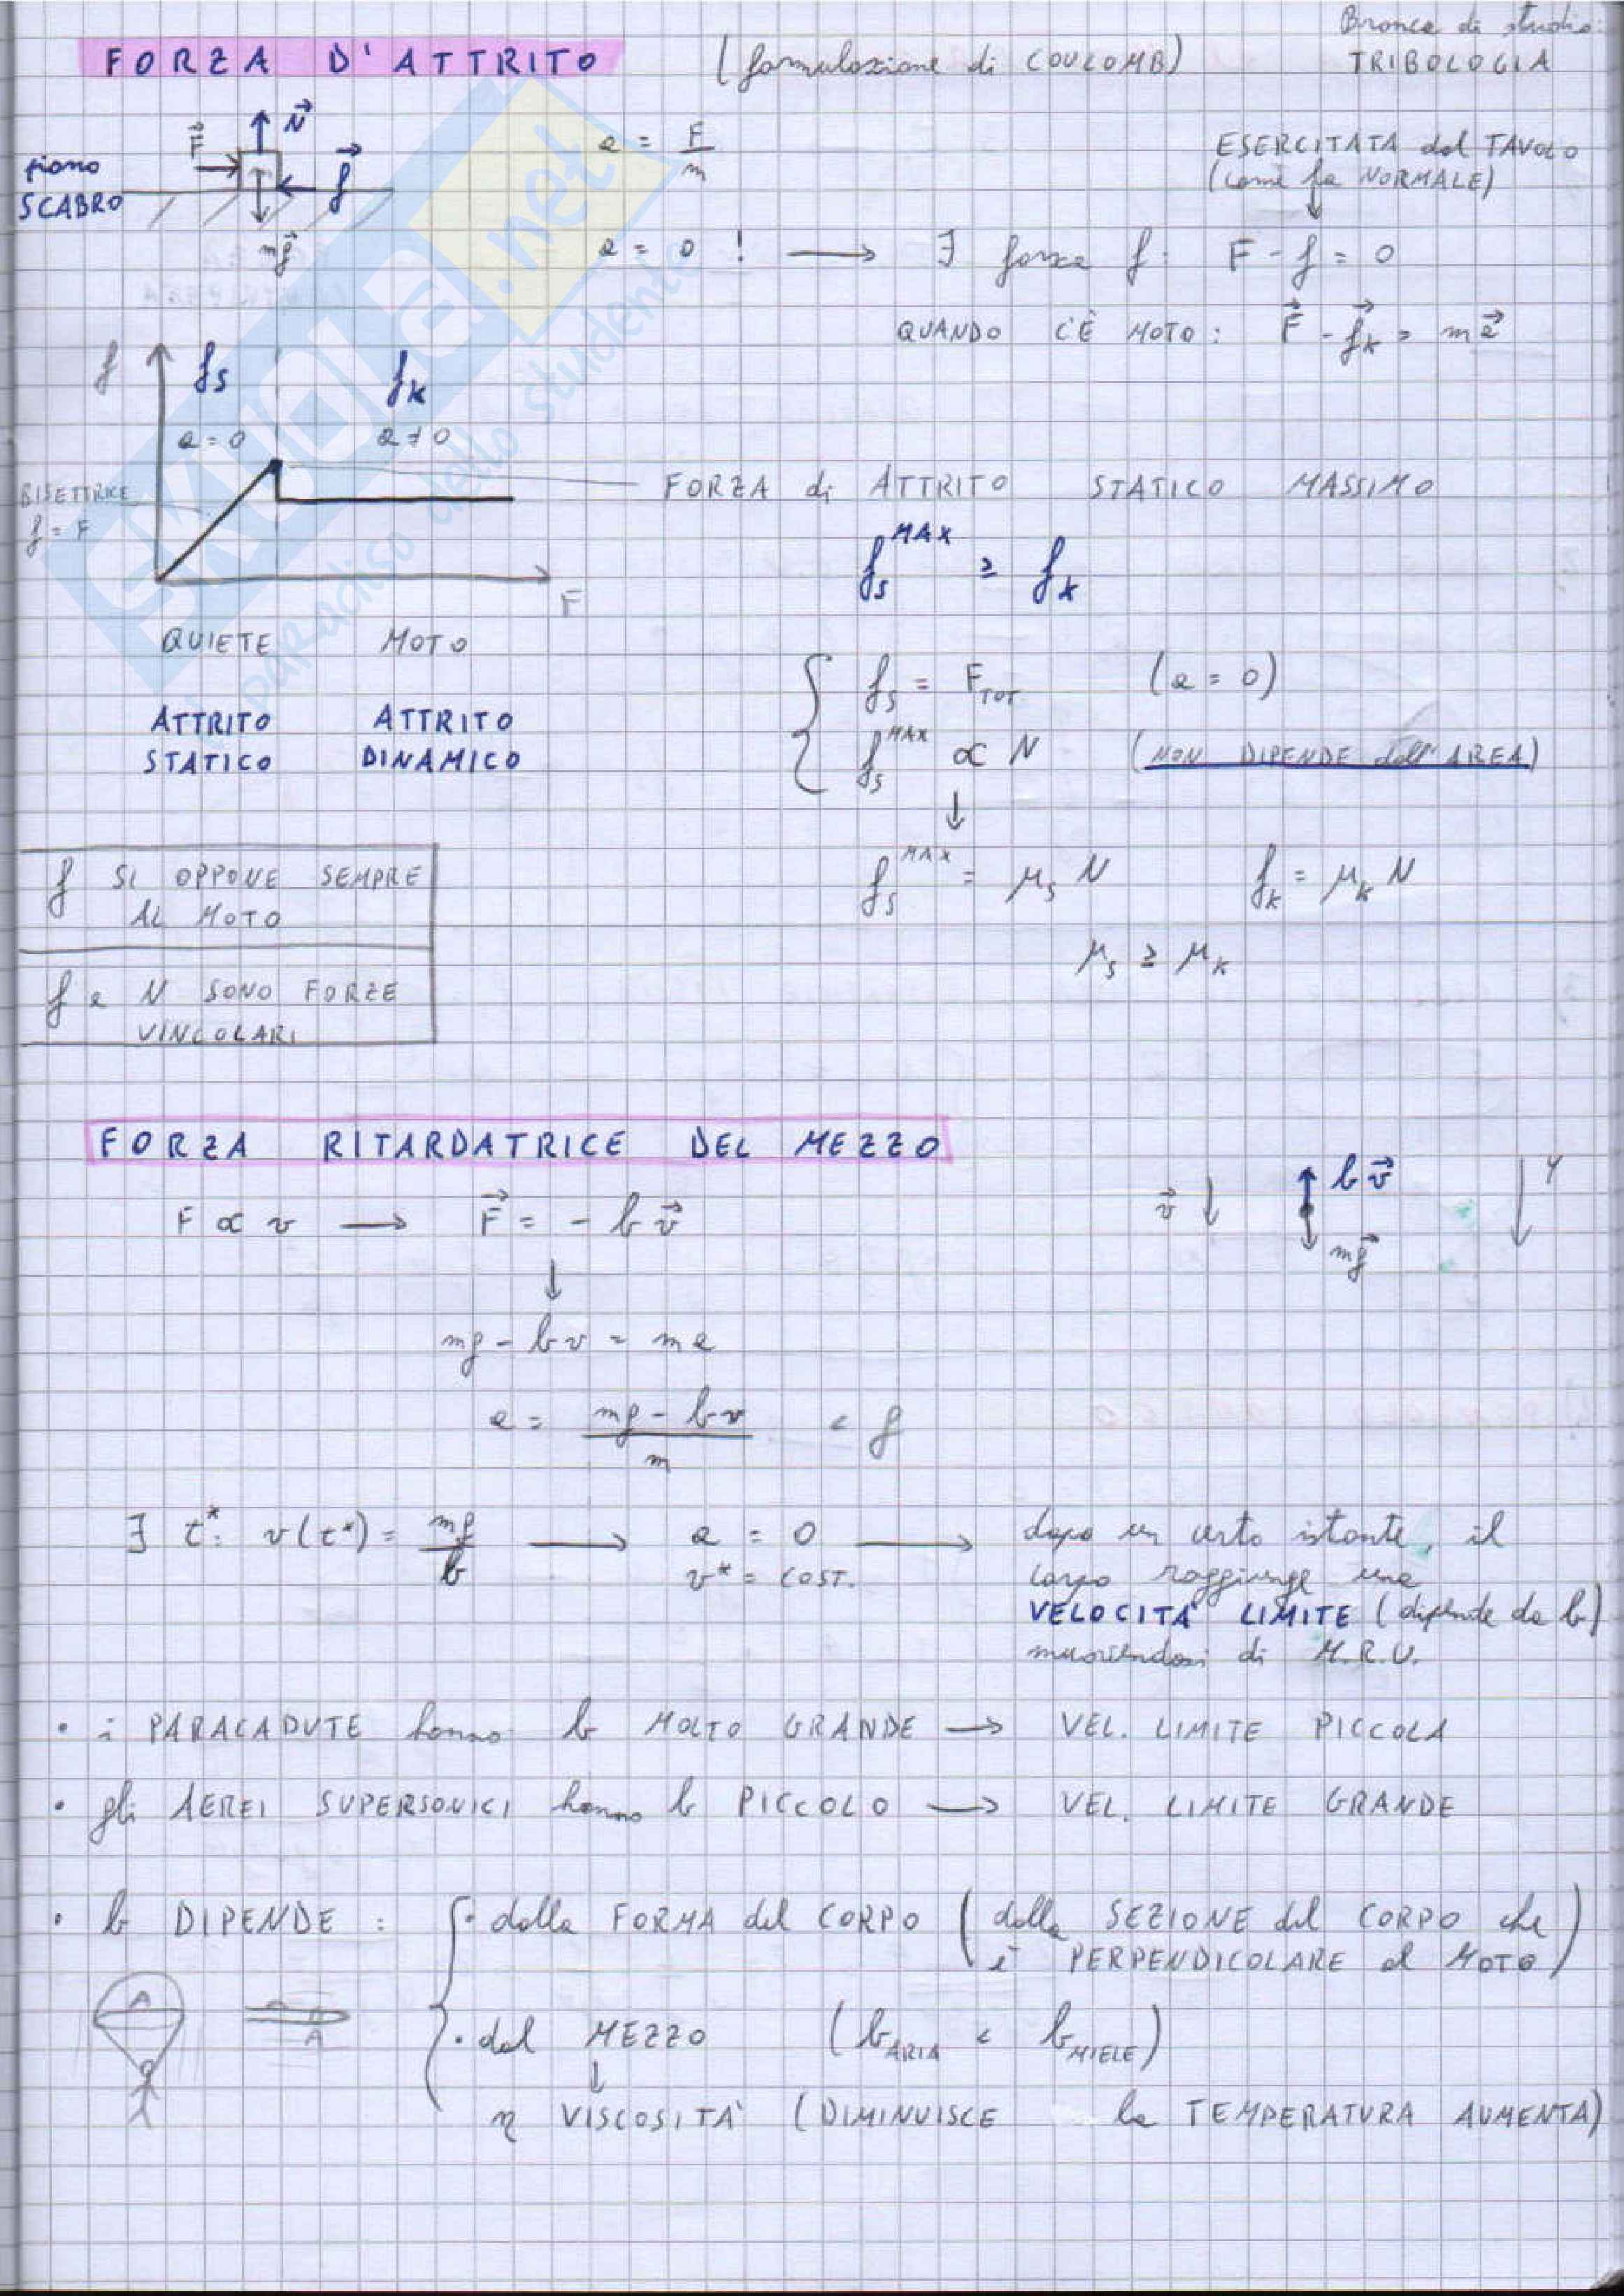 Branca di studio:
FORZA D'ATTRITO (formulazione di COULOMB) TRIBOLOGIA
F⃗ N⃗ f⃗ mg⃗
piano
SCABRO
a = F/m
ESERCITATA dal TAVOLO
(come la NORMALE)
↓
a = 0 ! → ∃ forza f: F - f = 0
QUANDO C'È MOTO: F⃗ - f⃗k = ma⃗
f fs fk
a = 0 a ≠ 0
BISETTRICE
f = F
F
FORZA di ATTRITO STATICO MASSIMO
fs^MAX ≥ fk
QUIETE MOTO
ATTRITO ATTRITO
STATICO DINAMICO
{ fs = F_TOT (a = 0)
fs^MAX ∝ N (NON DIPENDE dall'AREA)
↓
fs^MAX = μs N fk = μk N
μs ≥ μk
f SI OPPONE SEMPRE
AL MOTO
f e N SONO FORZE
VINCOLARI
FORZA RITARDATRICE DEL MEZZO
F ∝ v → F⃗ = - b v⃗
v⃗ ↓ b v⃗ mg⃗ Y
↓
mg - b v = ma
a = (mg - bv)/m < g
∃ t*: v(t*) = mg/b → a = 0 → dopo un certo istante, il
v* = COST. corpo raggiunge una
VELOCITÀ LIMITE (dipende da b)
muovendosi di M.R.U.
• i PARACADUTE hanno b MOLTO GRANDE → VEL. LIMITE PICCOLA
• gli AEREI SUPERSONICI hanno b PICCOLO → VEL. LIMITE GRANDE
• b DIPENDE : { • dalla FORMA del CORPO (dalla SEZIONE del CORPO che
è PERPENDICOLARE al MOTO)
A A
• dal MEZZO (b_ARIA < b_MIELE)
↓
η VISCOSITÀ (DIMINUISCE la TEMPERATURA AUMENTA)
SKUOLA.net
il paradiso dello studente